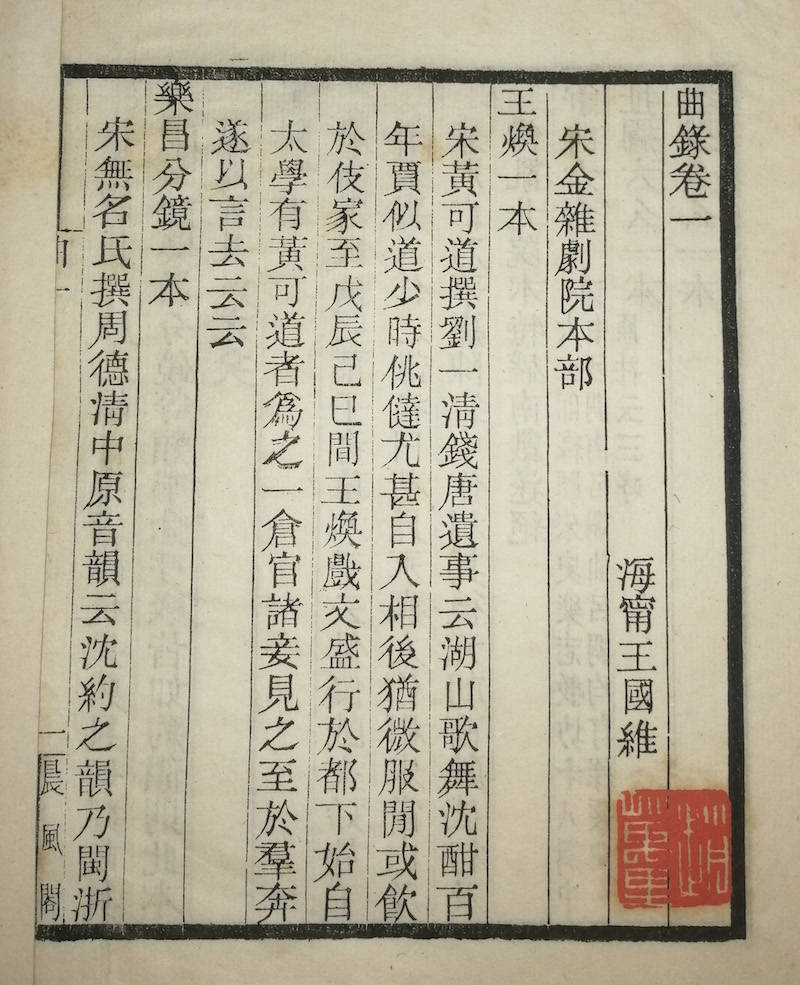 曲錄卷一
海甯王國維
宋金雜劇院本部
王煥一本
宋黃可道撰劉一淸錢唐遺事云湖山歌舞沈酣百
年賈似道少時佻㒓尤甚自入相後猶微服閒或飮
於伎家至戊辰己巳間王煥戲文盛行於都下始自
太學有黃可道者爲之一倉官諸妾見之至於羣奔
遂以言去云云
樂昌分鏡一本
宋無名氏撰周德淸中原音韻云沈約之韻乃閩浙
一晨風閣